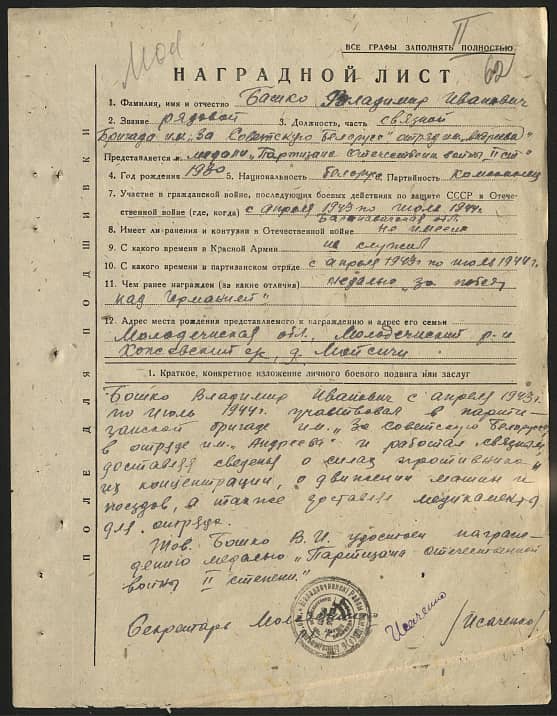 ВСЕ ГРАФЫ ЗАПОЛНЯТЬ ПОЛНОСТЬЮ
II
62
НАГРАДНОЙ ЛИСТ
1. Фамилия, имя и отчество Башко Владимир Иванович
2. Звание рядовой 3. Должность, часть связной
Бригада им. „За Советскую Белорус" отряд им. Андреева
Представляется к медали „Партизан Отечествен. войны" II ст
4. Год рождения 1930 5. Национальность белорус Партийность комсомолец
7. Участие в гражданской войне, последующих боевых действиях по защите СССР в Отече-
ственной войне (где, когда) с апреля 1943 по июль 1944г.
обл.
8. Имеет ли ранения и контузии в Отечественной войне не имеет
9. С какого времени в Красной Армии не служил
10. С какого времени в партизанском отряде с апреля 1943г по июль 1944г.
11. Чем ранее награжден (за какие отличия) медалью „за победу
над Германией"
12. Адрес места рождения представляемого к награждению и адрес его семьи
Молодечнская обл., Молодечнский р-н
с/с, д. Мойсичи
1. Краткое, конкретное изложение личного боевого подвига или заслуг
Бошко Владимир Иванович с апреля 1943г.
по июль 1944г. участвовал в парти-
занской бригаде им. „За Советскую Белоруссию
в отряде им. „Андреева" и работал связным
доставляя сведения о силах противника
их концентрации, о движении машин и
поездов, а также доставлял медикамента
для отряда.
Тов. Бошко В.И. удостоен награж-
дению медалью „Партизана Отечественной
войны II степени."
Секретарь Исаченко /Исаченко/
ПОЛЕ ДЛЯ ПОДШИВКИ